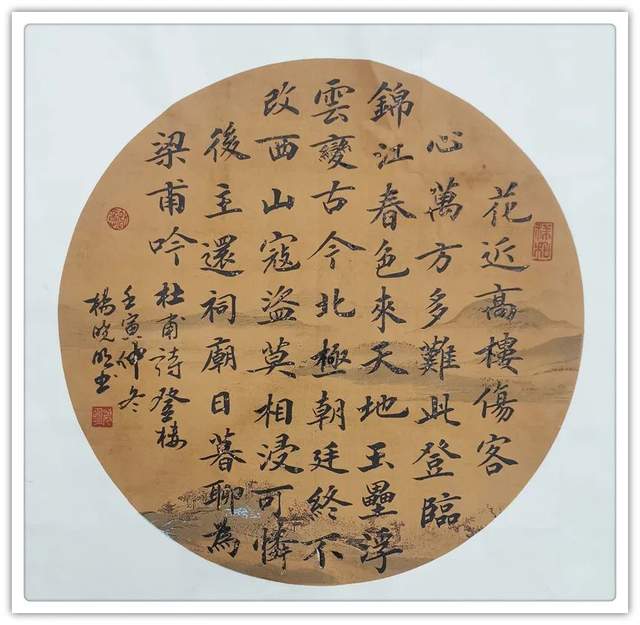 花近高樓傷客
心萬方多難此登臨
錦江春色來天地玉壘浮
雲變古今北極朝廷終不
改西山寇盜莫相浸可憐
後主還祠廟日暮聊為
梁甫吟
杜甫詩登楼
壬寅仲冬
楊晓明书